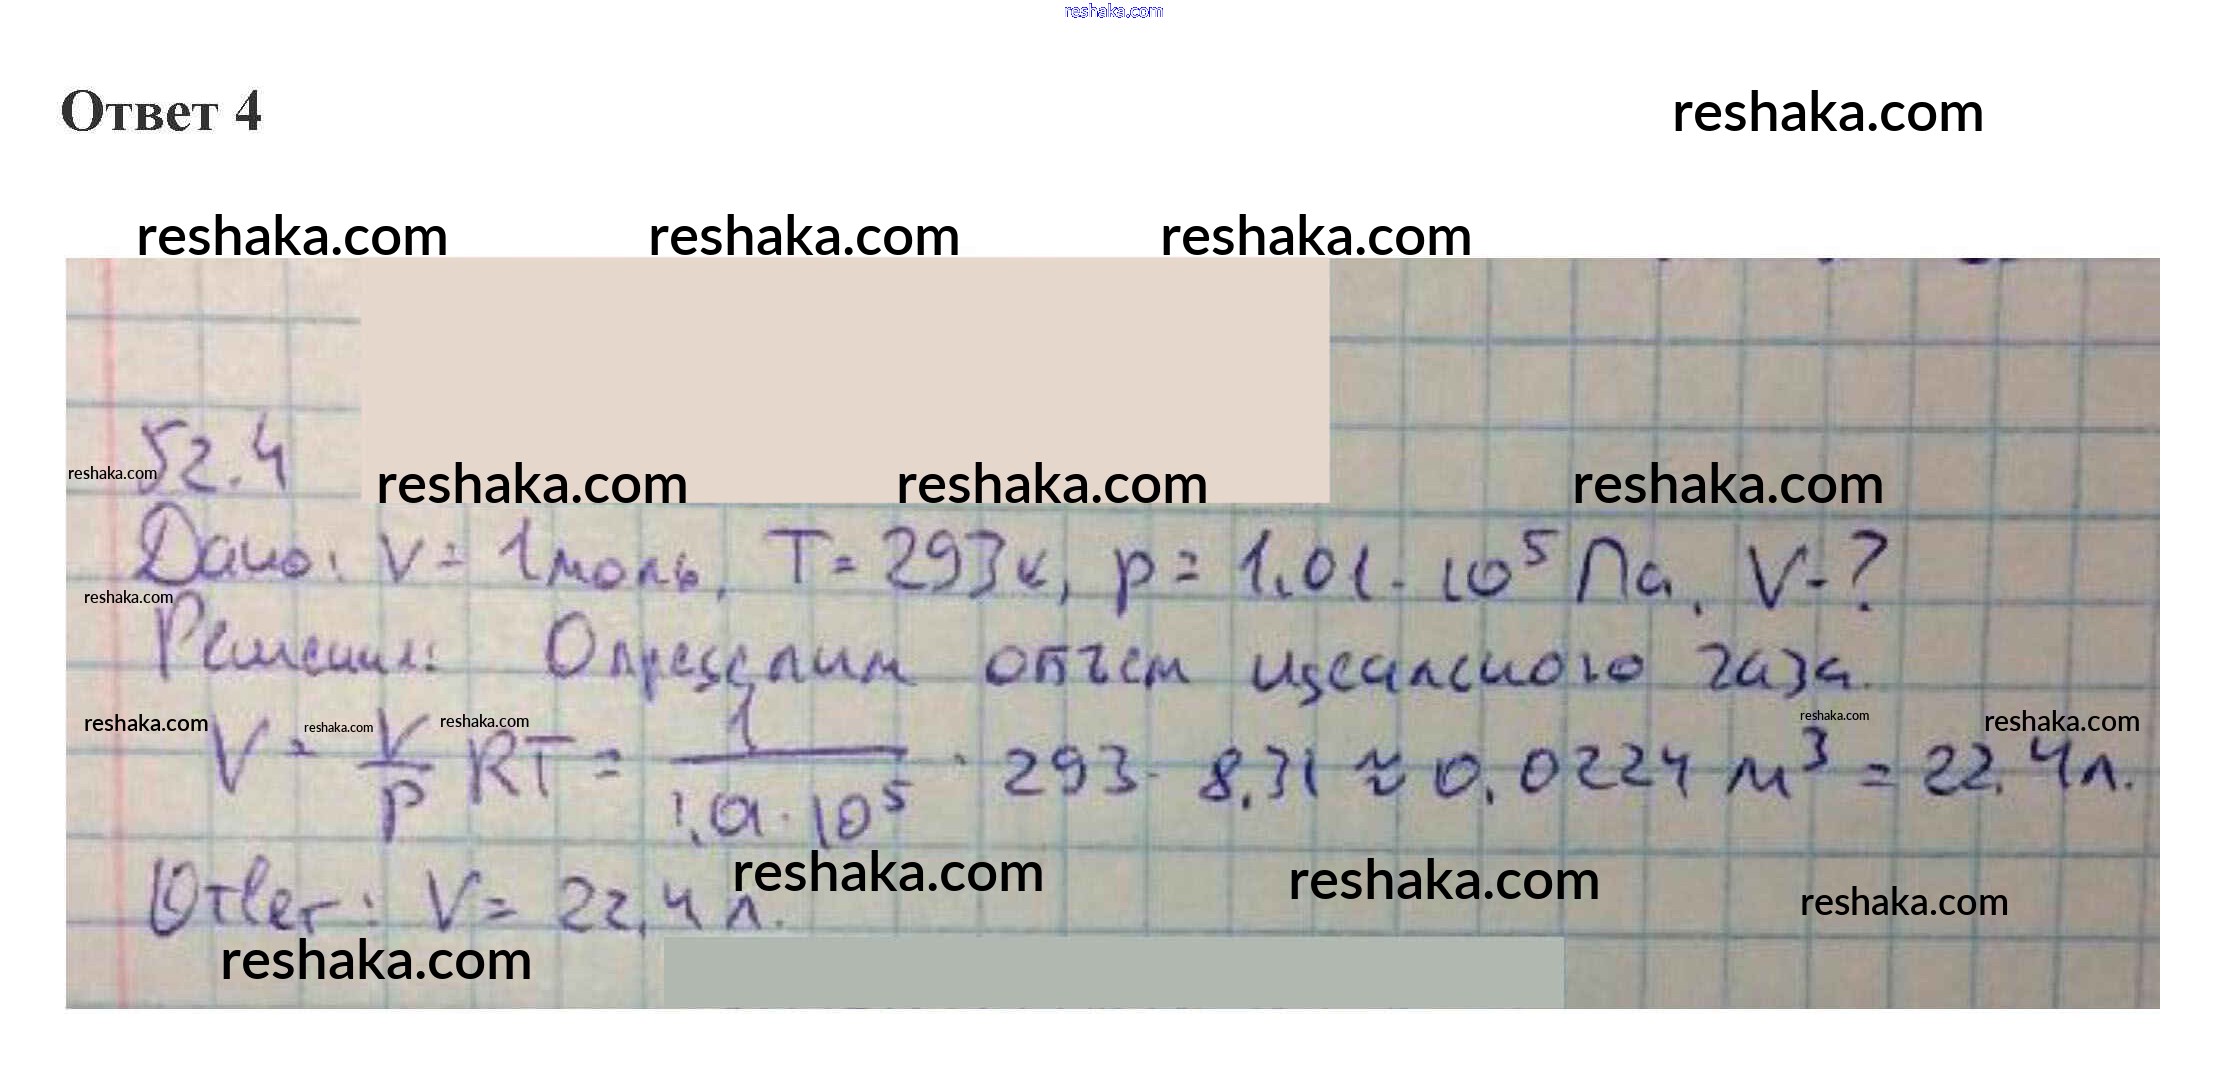 reshaka.com
Ответ 4
reshaka.com
reshaka.com reshaka.com reshaka.com
52.4
reshaka.com reshaka.com reshaka.com reshaka.com
Дано: ν = 1 моль, T = 293 к, p = 1,01 · 10⁵ Па. V - ?
reshaka.com
Решение: Определим объем идеального газа.
reshaka.com reshaka.com reshaka.com reshaka.com reshaka.com
V = ν/p RT = 1/(1,01 · 10⁵) · 293 · 8,31 ≈ 0,0224 м³ = 22,4 л.
reshaka.com reshaka.com reshaka.com
Ответ: V = 22,4 л.
reshaka.com